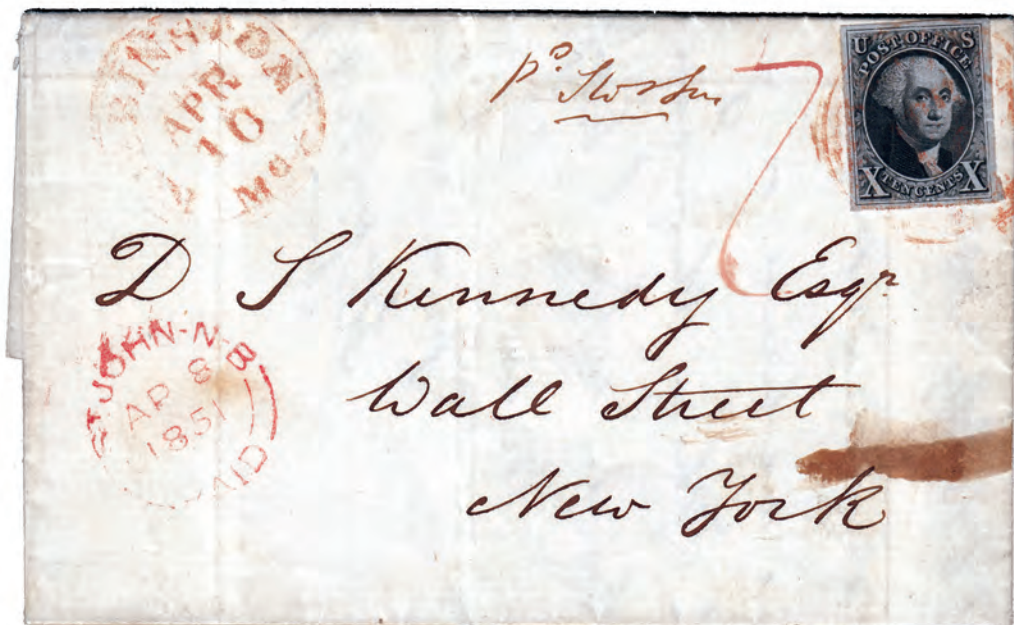 APR
10
Me
7
U S
POST OFFICE
X TEN CENTS X
D S Kennedy Esqr.
Wall Street
New York
JOHN-N-B
AP 8
1851
PAID